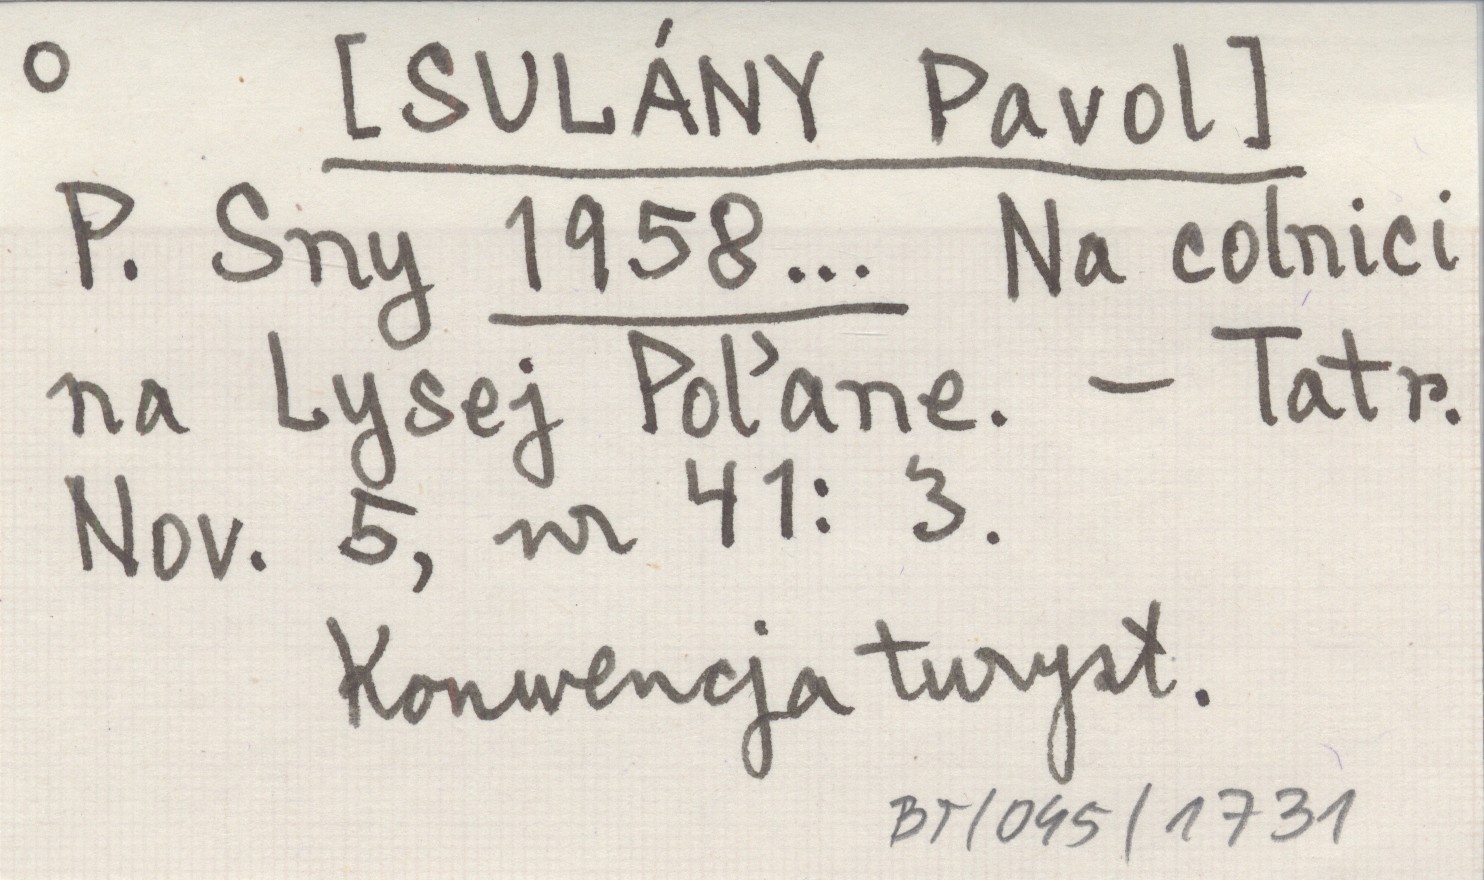 o [SULÁNY Pavol]
P. Sny 1958... Na colnici
na Lysej Poľane. – Tatr.
Nov. 5, nr 41: 3.
Konwencja turyst.
BT/045/1731